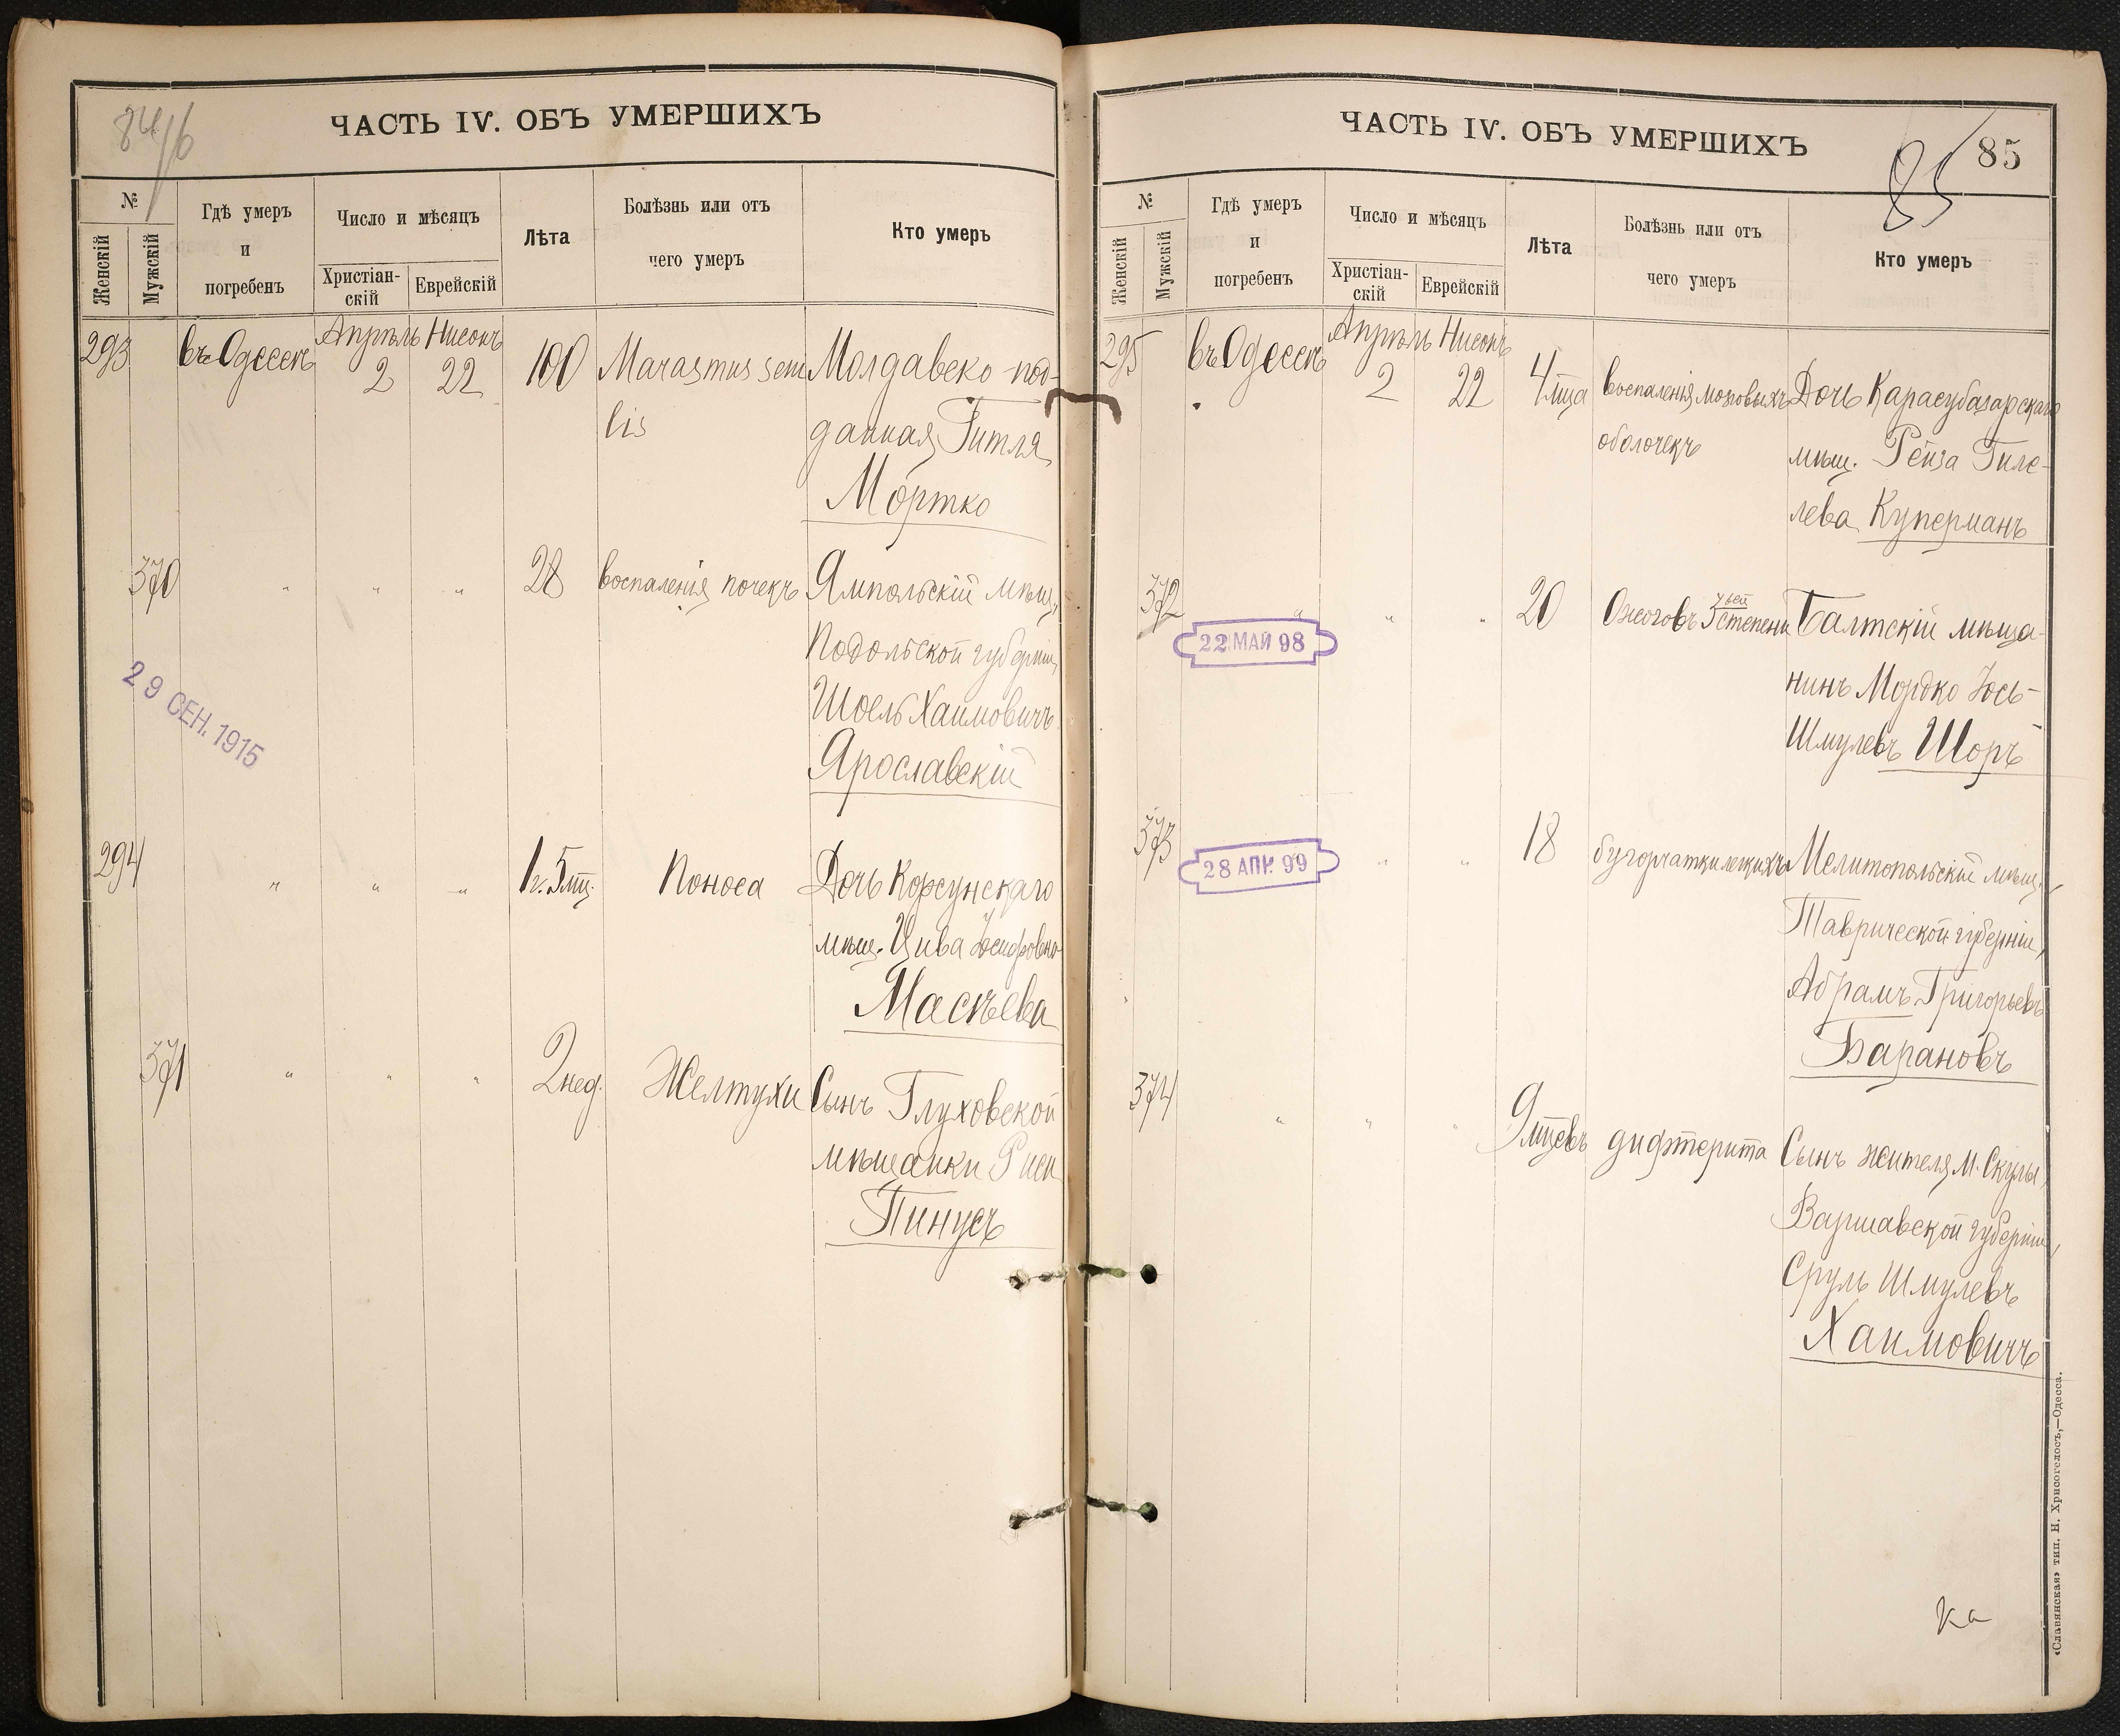 ЧАСТЬ IV. ОБЪ УМЕРШИХЪ
№
Женскій
Мужскій
Гдѣ умеръ
и
погребенъ
Число и мѣсяцъ
Христіан-
скій
Еврейскій
Лѣта
Болѣзнь или отъ
чего умеръ
Кто умеръ
293 въ Одессѣ Апрѣль 2 Нисонъ 22 100 Marasmus seni Молдавско-под-
lis данная Гитля
Мортко
370 " " " 28 воспаленія почекъ Ямпольскій мѣщ.,
Подольской губерніи,
Шоель Хаимовичъ
Ярославскій
29 СЕН. 1915
294 " " " 1 г. 5 мц. Поноса Дочь Корсунскаго
мѣщ. Цива Іосифовна
Маскѣева
371 " " " 2 нед. Желтухи Сынъ Глуховской
мѣщанки Риси
Пинусъ
ЧАСТЬ IV. ОБЪ УМЕРШИХЪ
85
85
№
Женскій
Мужскій
Гдѣ умеръ
и
погребенъ
Число и мѣсяцъ
Христіан-
скій
Еврейскій
Лѣта
Болѣзнь или отъ
чего умеръ
Кто умеръ
295 въ Одессѣ Апрѣль 2 Нисонъ 22 4 мца воспаленія мозговыхъ Дочь Карасубазарскаго
оболочекъ мѣщ. Рейза Гиле-
лева Куперманъ
372 " " " 20 Ожоговъ степени Балтскій мѣща-
22 МАЙ 98
нинъ Мордко Іось-
Шмулевъ Шоръ
373 " " 18 бугорчатки легкихъ Мелитопольскій мѣщ.,
28 АПР. 99
Таврической губерніи,
Абрамъ Григорьевъ
Барановъ
374 " " " 9 мцевъ дифтерита Сынъ жителя м. Скулы,
Варшавской губерніи,
Сруль Шмулевъ
Хаимовичъ
ка
«Славянская» тип. Н. Хрисогелосъ,—Одесса.